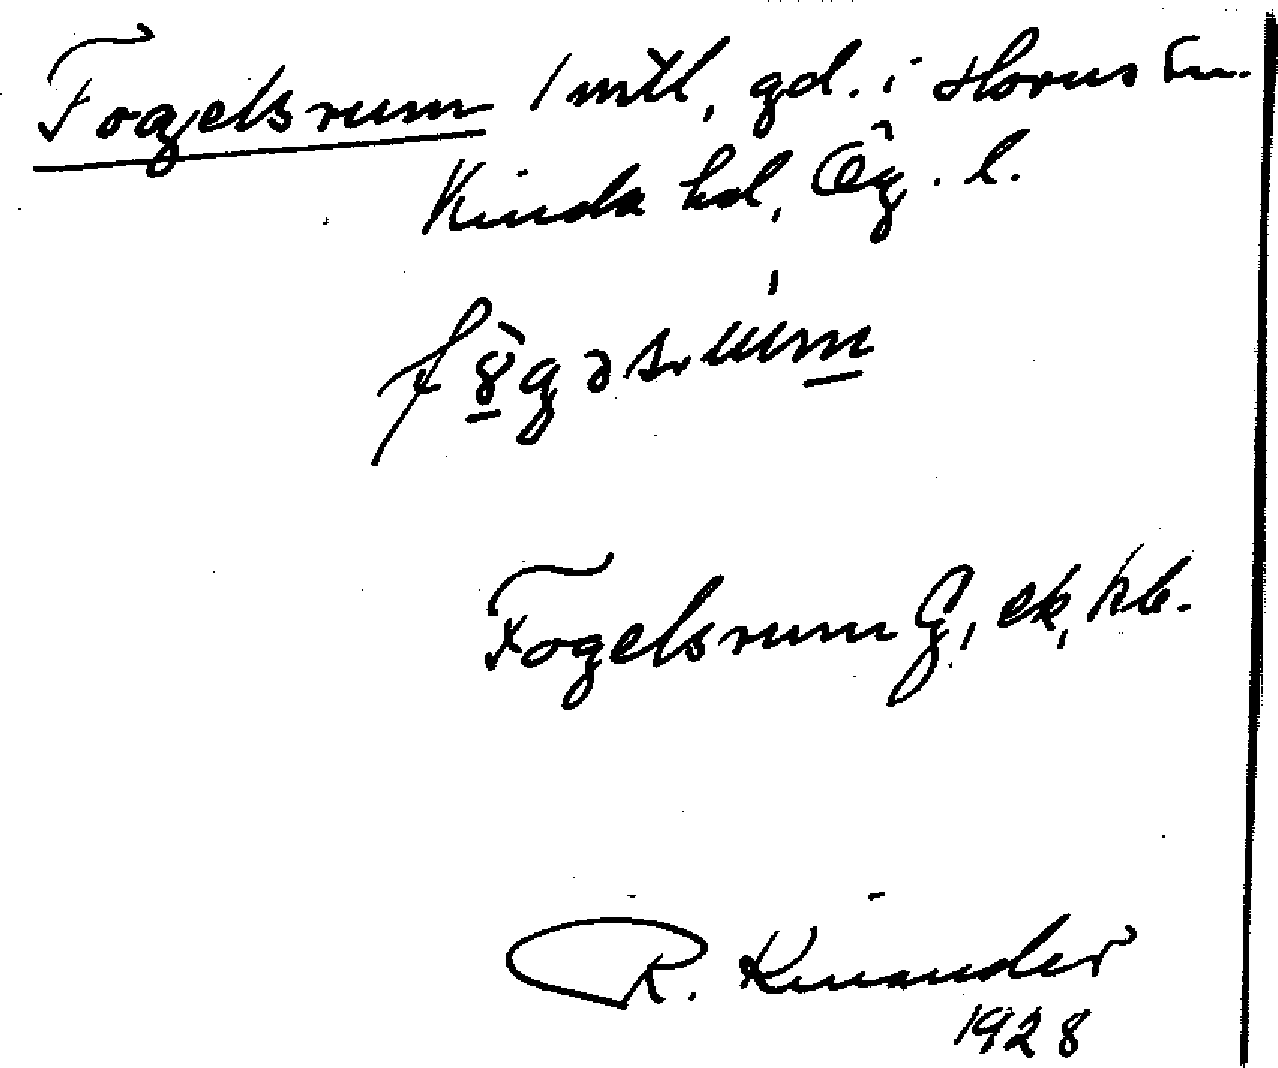 Fogelsrum 1 mtl, gd. i Horns sn.
Kinda hd, Ög. l.
Fogelsrum G, ek, kb.
R. Kinander
1928